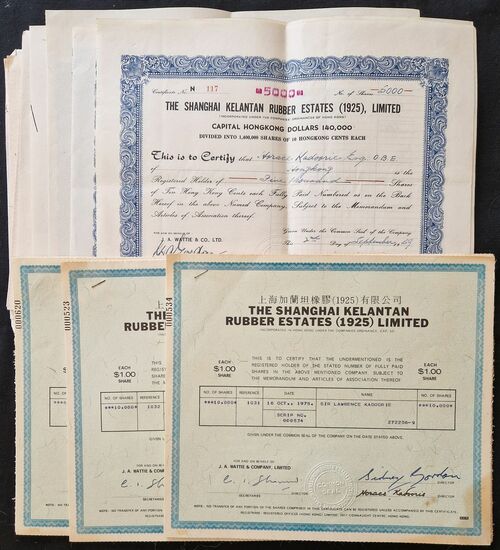 Certificate No. N 117
5000
No. of Shares 5000
THE SHANGHAI KELANTAN RUBBER ESTATES (1925), LIMITED
(INCORPORATED UNDER THE COMPANIES ORDINANCES OF HONG KONG)
CAPITAL HONGKONG DOLLARS 140,000
DIVIDED INTO 1,400,000 SHARES OF 10 HONGKONG CENTS EACH
This is to Certify that Horace Kadoorie Esq. O.B.E.
of Hongkong is the
Registered Holder of Five Thousand Shares
of Ten Hong Kong Cents each Fully Paid Numbered as on the Back
Hereof in the above Named Company, Subject to the Memorandum and
Articles of Association thereof.
Given Under the Common Seal of the Company
This 2nd Day of September
FOR AND ON BEHALF OF
J. A. WATTIE & CO. LTD.
000620
000523
000534
RUBBER
RUBBER
EACH
$1.00
SHARE
EACH
$1.00
SHARE
NO. OF SHARES
REFERENCE
***10,000*
1032
NO. OF SHARES
REFERENCE
***10,000*
1032
GIVEN
FOR AND ON BEHALF OF
J. A. WATTIE & COMPANY
上海加蘭坦橡膠(1925)有限公司
THE SHANGHAI KELANTAN
RUBBER ESTATES (1925) LIMITED
INCORPORATED IN HONG KONG UNDER THE COMPANIES ORDINANCE, CAP. 32
EACH
$1.00
SHARE
THIS IS TO CERTIFY THAT THE UNDERMENTIONED IS THE
REGISTERED HOLDER OF THE STATED NUMBER OF FULLY PAID
SHARES IN THE ABOVE MENTIONED COMPANY SUBJECT TO
THE MEMORANDUM AND ARTICLES OF ASSOCIATION THEREOF
EACH
$1.00
SHARE
NO. OF SHARES REFERENCE DATE NAME NO. OF SHARES
***10,000* 1031 16 OCT., 1975. SIR LAWRENCE KADOORIE ***10,000*
SERIP NO.
000534 272206-9
GIVEN UNDER THE COMMON SEAL OF THE COMPANY ON THE DATE STATED ABOVE.
FOR AND ON BEHALF OF
J. A. WATTIE & COMPANY, LIMITED
COMMON SEAL
Sidney Gordon
DIRECTOR
Horace Kadoorie
DIRECTOR
NOTE: NO TRANSFER OF ANY PORTION OF THE SHARES COMPRISED IN THIS CERTIFICATE CAN BE REGISTERED UNLESS ACCOMPANIED BY THIS CERTIFICATE.